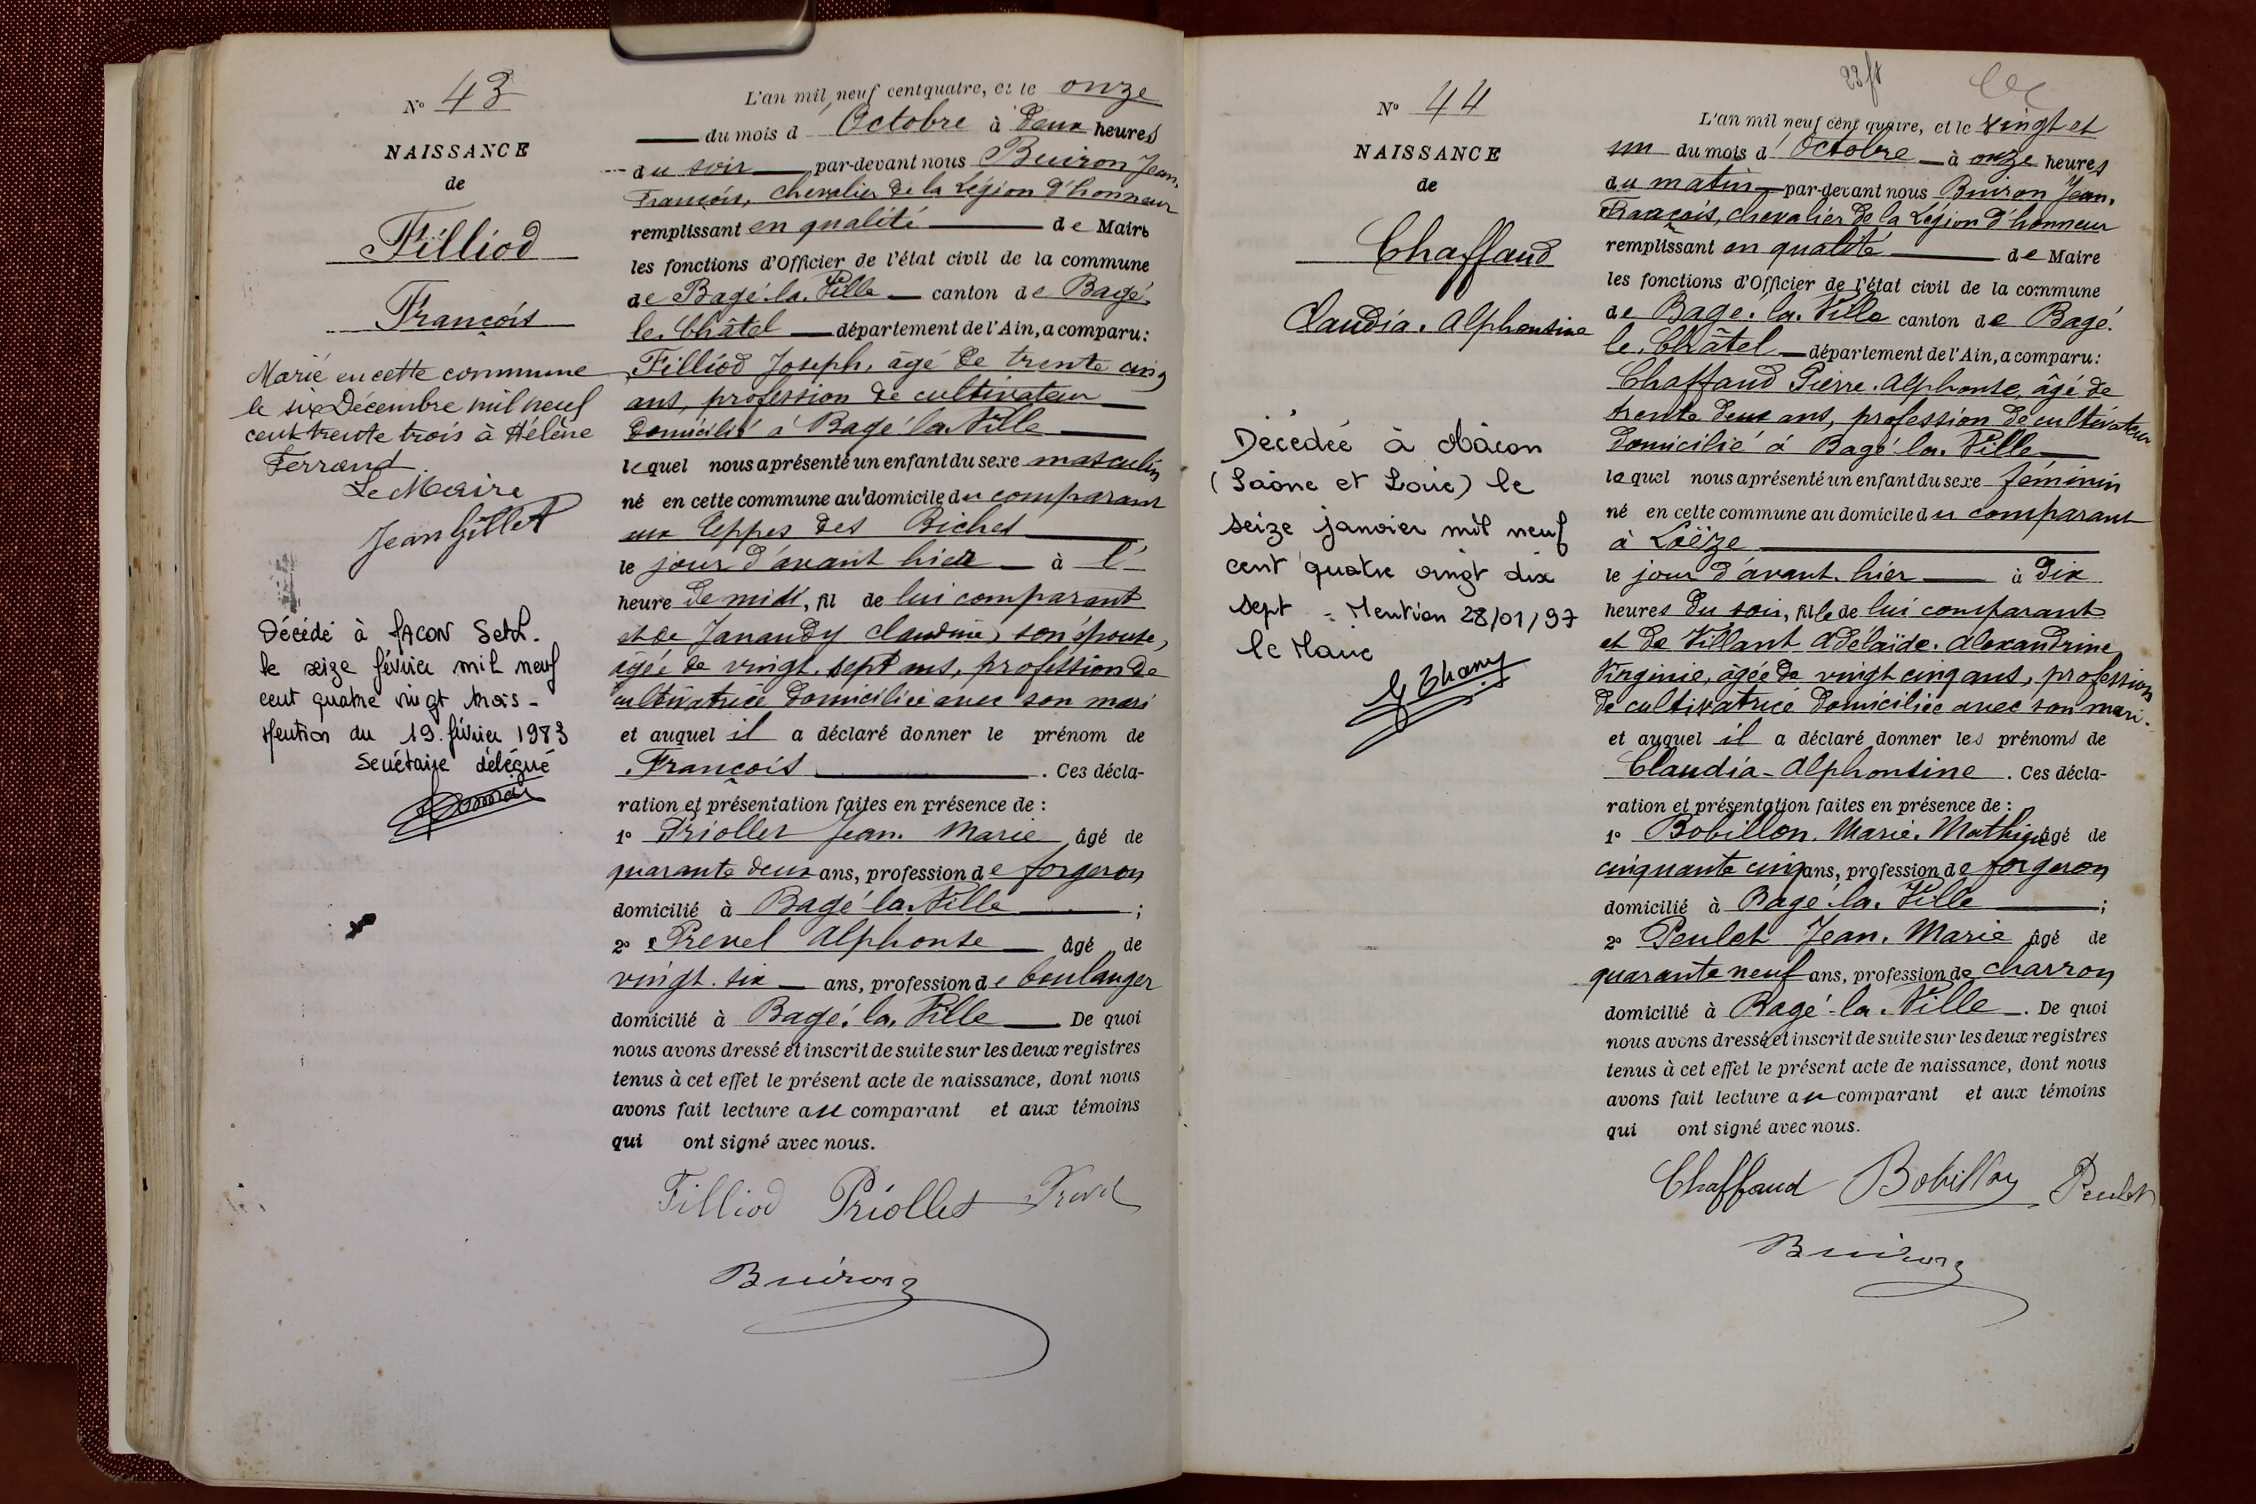 N° 43
NAISSANCE
de
Filliod
François
Marié en cette commune
le six Décembre mil neuf
cent trente trois à Hélène
Ferrand.
Le Maire
Jean Gillet
Décédé à MACON S et L.
le seize février mil neuf
cent quatre vingt trois -
Mention du 19 février 1983
Secrétaire délégué
L'an mil neuf cent quatre, et le onze
du mois d'Octobre à deux heures
du soir par-devant nous Buiron Jean.
François, chevalier de la Légion d'honneur
remplissant en qualité de Maire
les fonctions d'Officier de l'état civil de la commune
de Bagé. la. Ville canton de Bagé.
le. Châtel département de l'Ain, a comparu :
Filliod Joseph, âgé de trente cinq
ans, profession de cultivateur
domicilié à Bagé la. Ville
lequel nous a présenté un enfant du sexe masculin
né en cette commune au domicile du comparant
aux Teppes des Biches
le jour d'avant hier à l'
heure de midi, fil de lui comparant
et de Janaudy Claudine, son épouse,
âgée de vingt. sept ans, profession de
cultivatrice domiciliée avec son mari
et auquel il a déclaré donner le prénom de
François . Ces décla-
ration et présentation faites en présence de :
1° Priollet Jean. Marie âgé de
quarante deux ans, profession de forgeron
domicilié à Bagé la. Ville ;
2° Prevel Alphonse âgé de
vingt. six ans, profession de boulanger
domicilié à Bagé. la. Ville De quoi
nous avons dressé et inscrit de suite sur les deux registres
tenus à cet effet le présent acte de naissance, dont nous
avons fait lecture au comparant et aux témoins
qui ont signé avec nous.
Filliod Priollet Prevel
Buiron
N° 44
NAISSANCE
de
Chaffaud
Claudia. Alphonsine
Décédée à Mâcon
(Saône et Loire) le
seize janvier mil neuf
cent quatre vingt dix
sept - Mention 28/01/97
le Maire
L'an mil neuf cent quatre, et le vingt et
un du mois d'Octobre à onze heures
du matin par-devant nous Buiron Jean.
François, chevalier de la Légion d'honneur
remplissant en qualité de Maire
les fonctions d'Officier de l'état civil de la commune
de Bagé. la. Ville canton de Bagé.
le. Châtel département de l'Ain, a comparu :
Chaffaud Pierre. Alphonse, âgé de
trente deux ans, profession de cultivateur
domicilié à Bagé la. Ville
lequel nous a présenté un enfant du sexe féminin
né en cette commune au domicile du comparant
à Loëze
le jour d'avant. hier à dix
heures du soir, fille de lui comparant
et de Villant Adelaïde. Alexandrine
Virginie, âgée de vingt cinq ans, profession
de cultivatrice domiciliée avec son mari.
et auquel il a déclaré donner les prénoms de
Claudia - Alphonsine . Ces décla-
ration et présentation faites en présence de :
1° Bobillon. Marie. Mathieu âgé de
cinquante cinq ans, profession de forgeron
domicilié à Bagé. la. Ville ;
2° Peulet Jean. Marie âgé de
quarante neuf ans, profession de charron
domicilié à Bagé - la. Ville . De quoi
nous avons dressé et inscrit de suite sur les deux registres
tenus à cet effet le présent acte de naissance, dont nous
avons fait lecture au comparant et aux témoins
qui ont signé avec nous.
Chaffaud Bobillon Peulet
Buiron